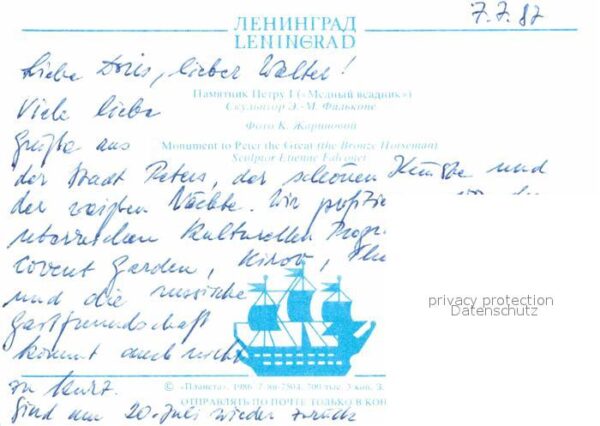 7.7.87
ЛЕНИНГРАД
LENINGRAD
Liebe Doris, lieber Walter!
Памятник Петру I («Медный всадник»)
Скульптор Э.-М. Фальконе
Viele liebe
Фото К. Жариновой
Grüße aus
Monument to Peter the Great (the Bronze Horseman)
Sculptor Etienne Falconet
der Stadt Peters, der schönen Künste und
der weißen Nächte. Wir
kulturellen
Covent Garden, Kirov,
und die russische
privacy protection
Datenschutz
Gastfreundschaft
kommt auch nicht
zu kurz.
© «Планета», 1986. 700 тыс. 3 коп. З.
ОТПРАВЛЯТЬ ПО ПОЧТЕ ТОЛЬКО В КОН
Sind am 20. Juli wieder zurück